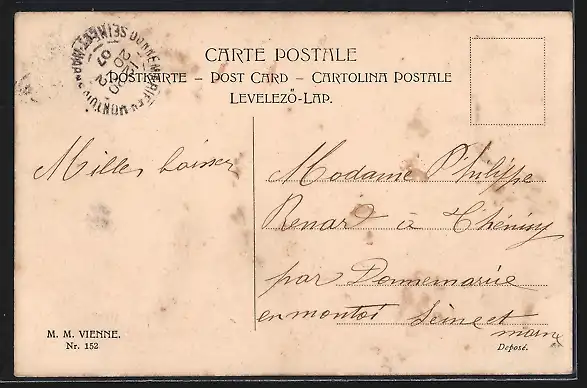 CARTE POSTALE
POSTKARTE – POST CARD – CARTOLINA POSTALE
LEVELEZŐ-LAP.
DONNEMARIE-EN-MONTOIS
SEINE-ET-MARNE
Milles baisers
Madame Philippe
Renard à Thénisy
par Donnemarie
en montoi Seine et
marne
M. M. VIENNE.
Nr. 152
Deposé.